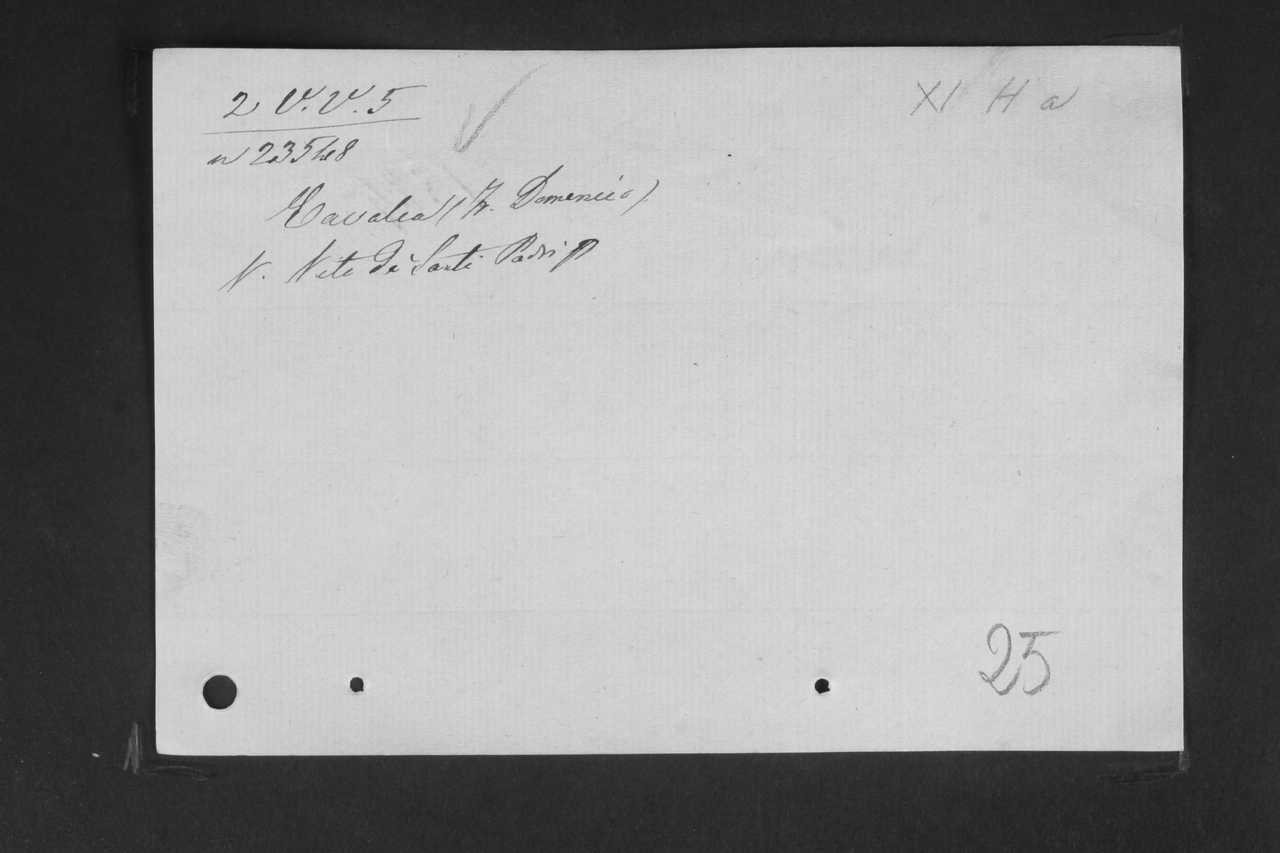 2 V.V.5
XI H a
n 23548
Cavalca (Fr. Domenico)
V. Vite dei Santi Padri
25